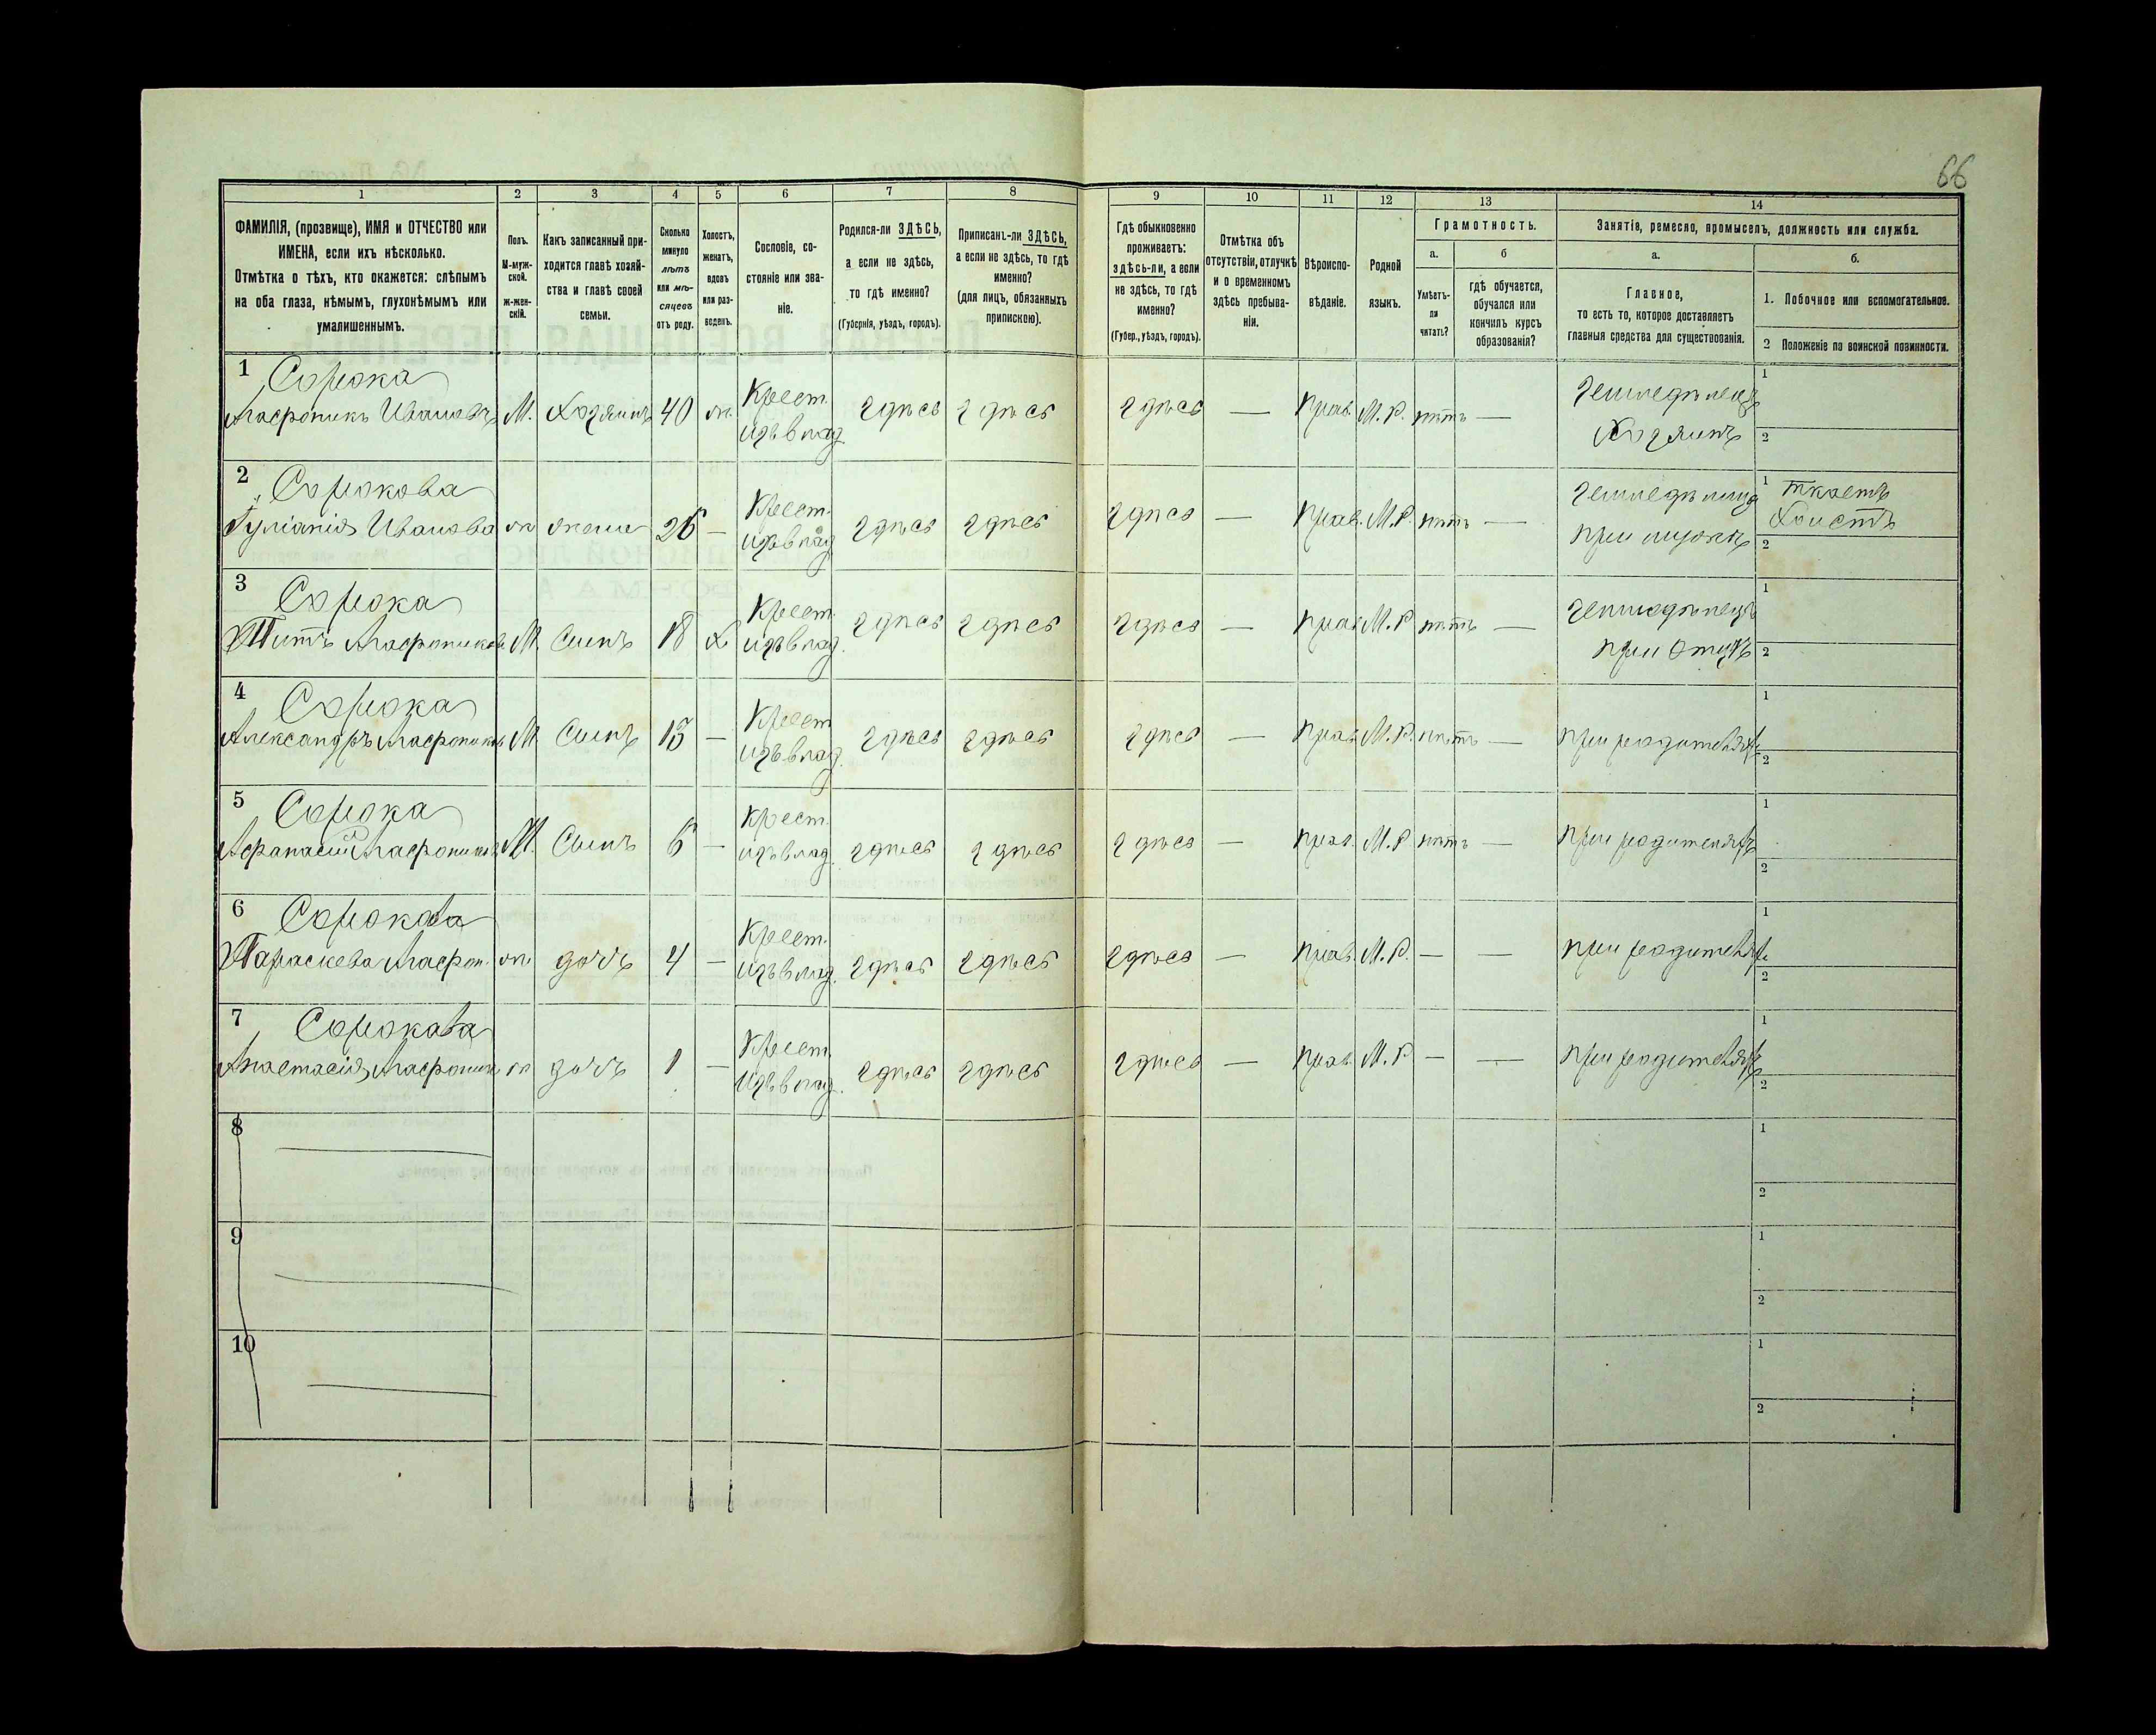 66
1
2
3
4
5
6
7
8
9
10
11
12
13
14
ФАМИЛІЯ, (прозвище), ИМЯ и ОТЧЕСТВО или
ИМЕНА, если ихъ нѣсколько.
Отмѣтка о тѣхъ, кто окажется: слѣпымъ
на оба глаза, нѣмымъ, глухонѣмымъ или
умалишеннымъ.
Полъ.
М-муж-
ской.
ж-жен-
скій.
Какъ записанный при-
ходится главѣ хозяй-
ства и главѣ своей
семьи.
Сколько
минуло
лѣтъ
или мѣ-
сяцевъ
отъ роду.
Холостъ,
женатъ,
вдовъ
или раз-
веденъ.
Сословіе, со-
стояніе или зва-
ніе.
Родился-ли ЗДѢСЬ,
а если не здѣсь,
то гдѣ именно?
(Губернія, уѣздъ, городъ).
Приписанъ-ли ЗДѢСЬ,
а если не здѣсь, то гдѣ
именно?
(для лицъ, обязанныхъ
припискою).
Гдѣ обыкновенно
проживаетъ:
здѣсь-ли, а если
не здѣсь, то гдѣ
именно?
(Губер., уѣздъ, городъ).
Отмѣтка объ
отсутствіи, отлучкѣ
и о временномъ
здѣсь пребыва-
ніи.
Вѣроиспо-
вѣданіе.
Родной
языкъ.
Грамотность.
а.
б
Умѣетъ-
ли
читать?
гдѣ обучается,
обучался или
кончилъ курсъ
образованія?
Занятіе, ремесло, промыселъ, должность или служба.
а.
б.
Главное,
то есть то, которое доставляетъ
главныя средства для существованія.
1. Побочное или вспомогательное.
2 Положеніе по воинской повинности.
1 Сорока
Иванов М. Хозяинъ 40 ж. Крест. изъ влад. здѣсь здѣсь здѣсь — прав. М. Р. нѣтъ — Земледѣлец Хозяинъ 1 2
2 Сорокова
Гуліанія Иванова ж жена 26 — Крест. изъ влад здѣсь здѣсь здѣсь — прав. М. Р. нѣтъ — при мужѣ 1 ткаетъ Холстъ 2
3 Сорока
Титъ М. Сынъ 18 х Крест. изъ влад. здѣсь здѣсь здѣсь — прав М. Р нѣтъ — земледѣлецъ при отцѣ 1 2
4 Сорока
Александръ М. Сынъ — Крест изъ влад. здѣсь здѣсь здѣсь — прав М. Р. нѣтъ — при родителяхъ 1 2
5 Сорока
Афанасій М. Сынъ 6 — Крест. изъ влад. здѣсь здѣсь здѣсь — прав. М. Р нѣтъ — при родителяхъ 1 2
6 Сорокова
Параскева ж дочь 4 — Крест. изъ влад. здѣсь здѣсь здѣсь — прав. М. Р. — — при родителях 1 2
7 Сорокова
Анастасія ж дочь 1 — Крест. изъ влад. здѣсь здѣсь здѣсь — прав. М. Р — — при родителяхъ 1 2
8 1 2
9 1 2
10 1 2